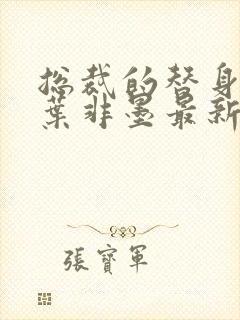 总裁的替身
葉非墨最新
張寶軍